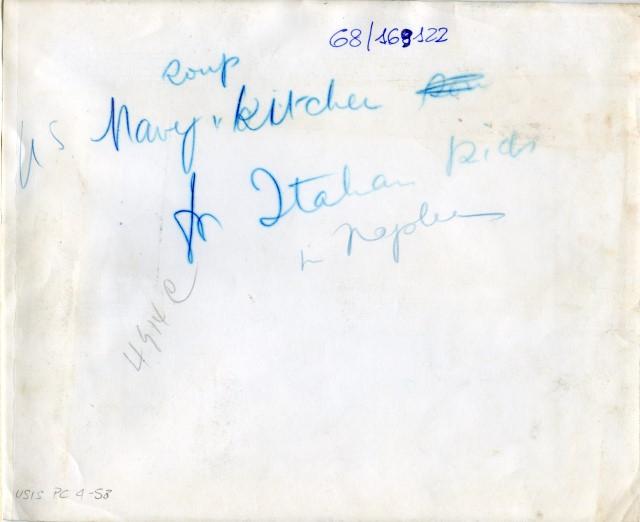 68/169122
soup
US Navy Kitchen
for Italian kids
in Naples
4914 C
USIS PC 4-58